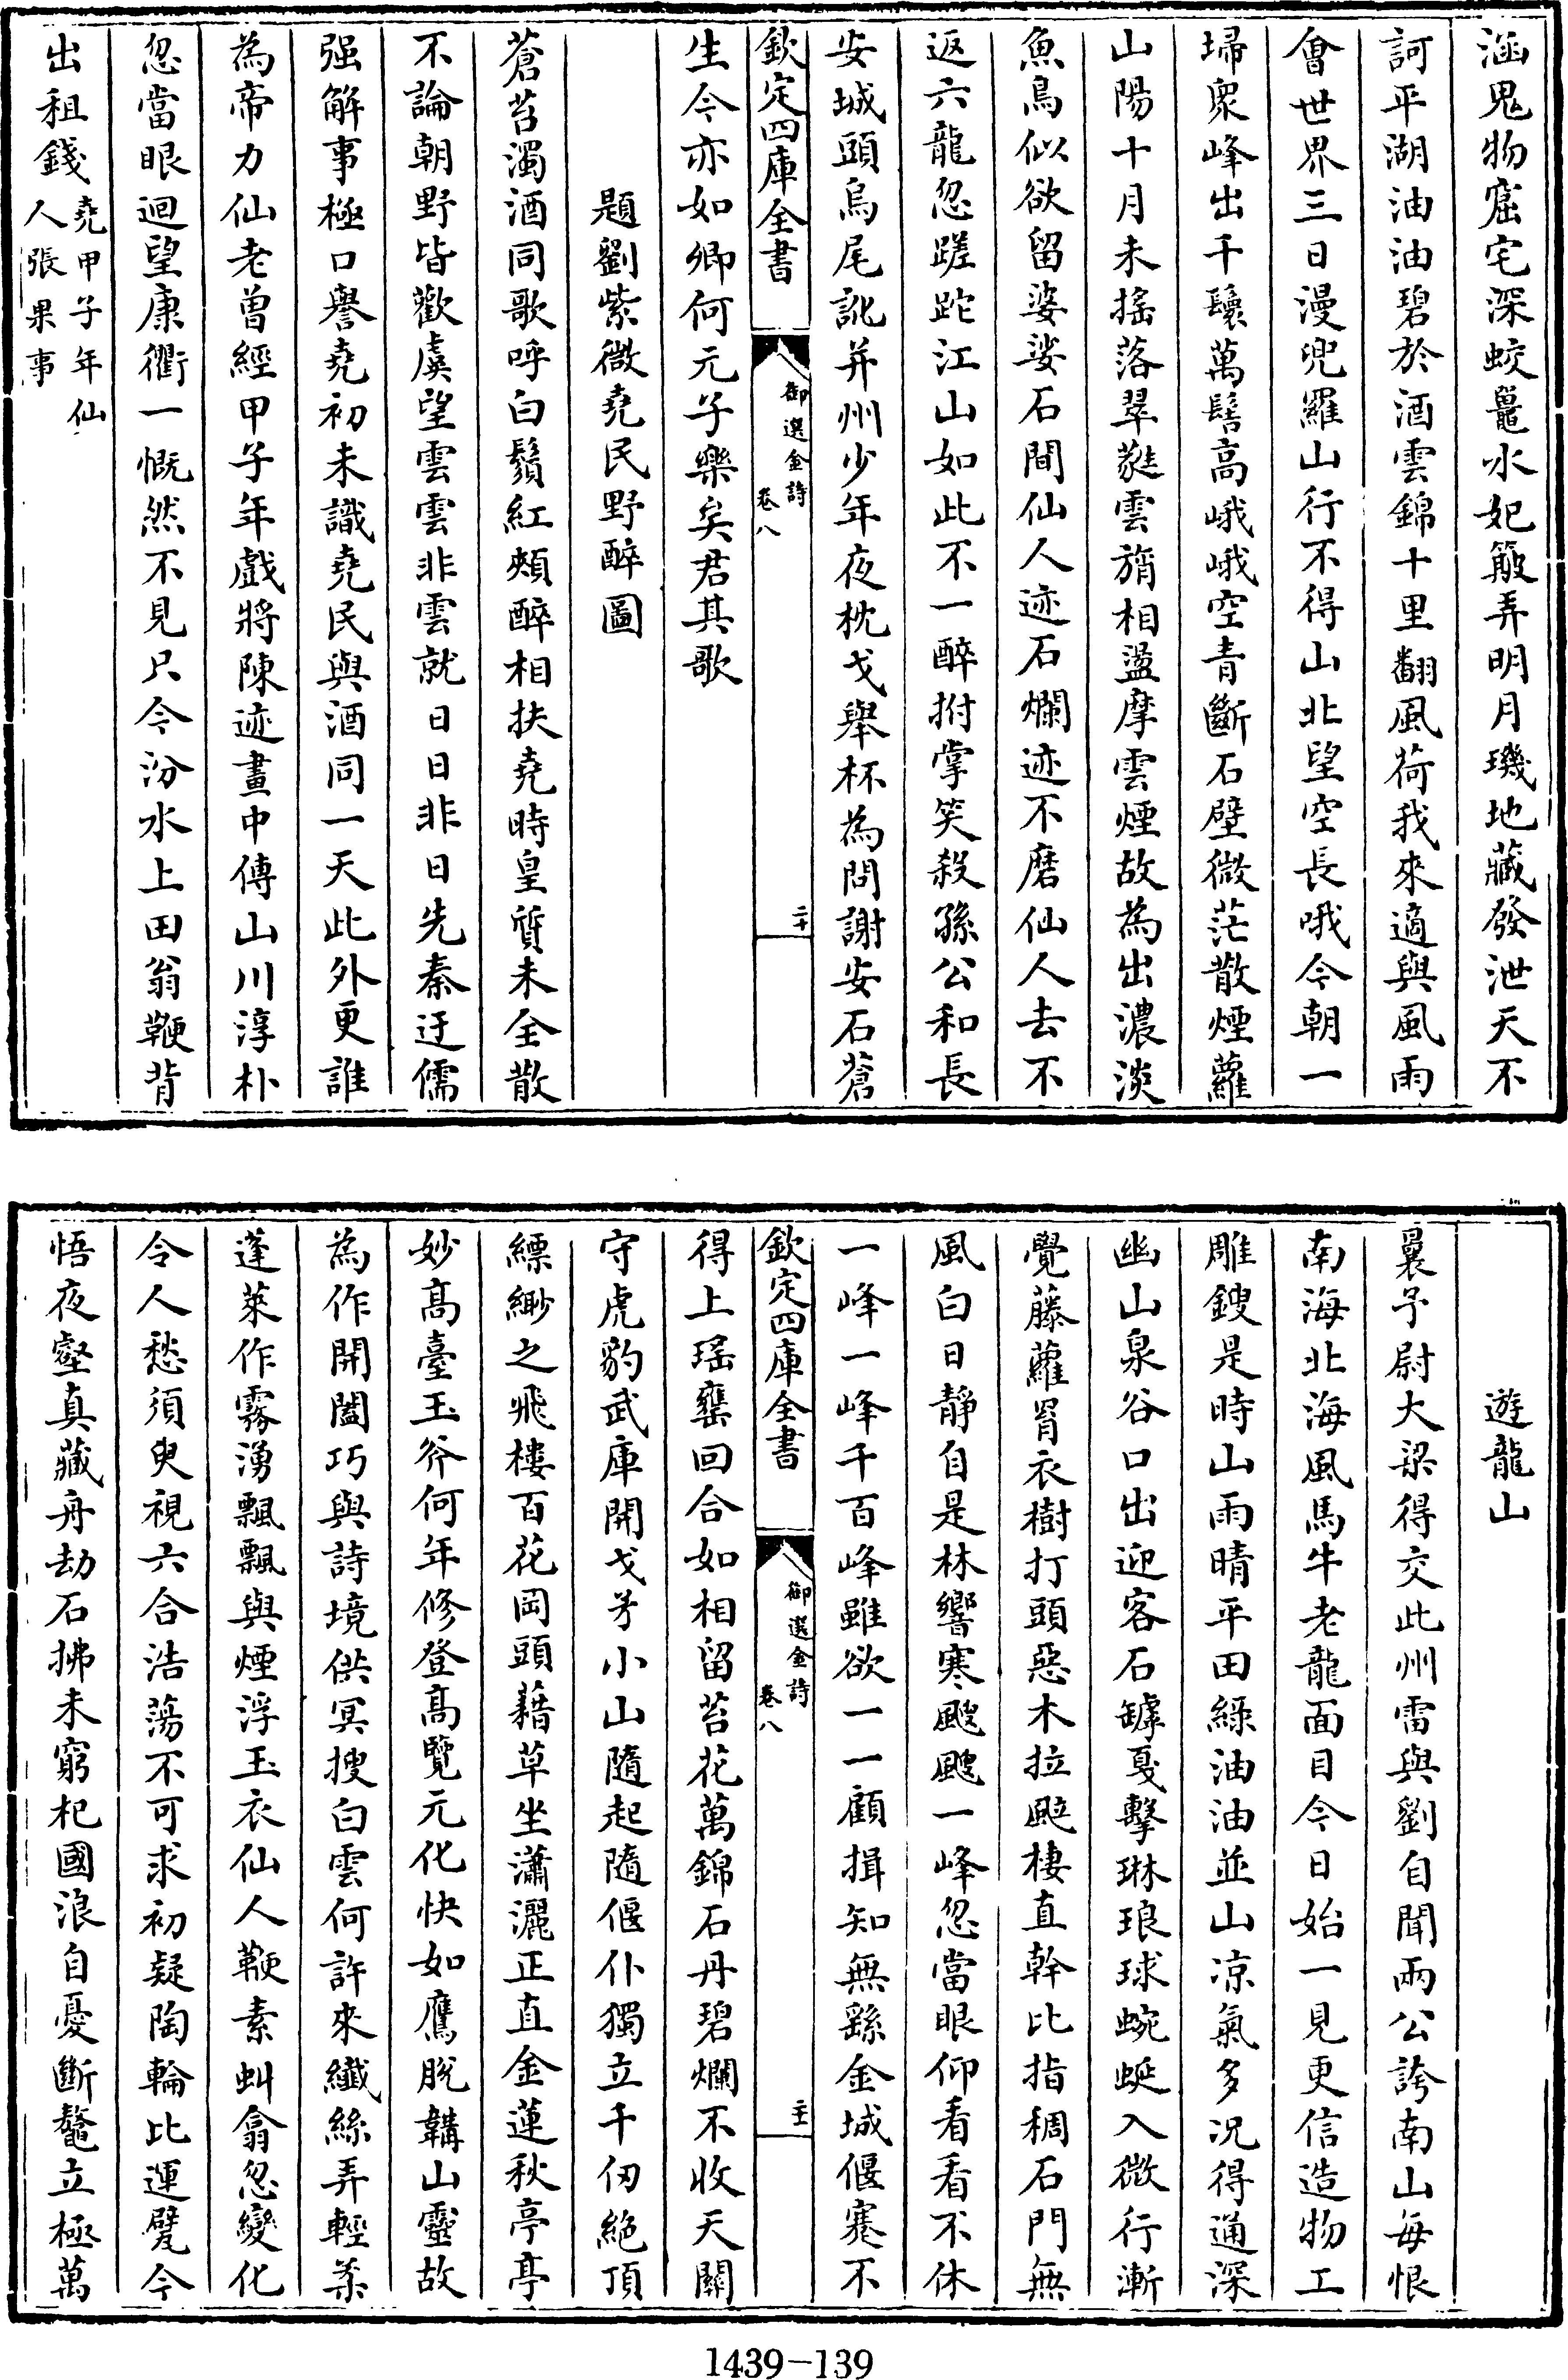 涵鬼物窟宅深蛟鼉水妃簸弄明月璣地藏發泄天不
訶平湖油油碧於酒雲錦十里翻風荷我來適與風雨
會世界三日漫兜羅山行不得山北望空長哦今朝一
埽衆峰出千鬟萬髻高峨峨空青斷石壁微茫散煙蘿
山陽十月未搖落翠蕤雲旓相盪摩雲煙故為出濃淡
魚鳥似欲留婆娑石間仙人迹石爛迹不磨仙人去不
返六龍忽蹉跎江山如此不一醉拊掌笑殺孫公和長
安城頭烏尾訛并州少年夜枕戈舉杯為問謝安石蒼
欽定四庫全書
御選金詩
卷八
二十
生今亦如卿何元子樂矣君其歌
題劉紫微堯民野醉圖
蒼苔濁酒同歌呼白鬚紅頰醉相扶堯時皇質未全散
不論朝野皆歡虞望雲雲非雲就日日非日先秦迂儒
强解事極口譽堯初未識堯民與酒同一天此外更誰
為帝力仙老曾經甲子年戲將陳迹畫中傳山川淳朴
忽當眼迴望康衢一慨然不見只今汾水上田翁鞭背
出租錢堯甲子年仙
人張果事
遊龍山
曩予尉大梁得交此州雷與劉自聞兩公誇南山每恨
南海北海風馬牛老龍面目今日始一見更信造物工
雕鎪是時山雨晴平田綠油油並山凉氣多况得通深
幽山泉谷口出迎客石罅戛擊琳琅球蜿蜒入微行漸
覺藤蘿罥衣樹打頭惡木拉颭棲直幹比指稠石門無
風白日靜自是林響寒颼颼一峰忽當眼仰看看不休
一峰一峰千百峰雖欲一一顧揖知無繇金城偃蹇不
欽定四庫全書
御選金詩
卷八
二十一
得上瑶罋回合如相留苔花萬錦石丹碧爛不收天關
守虎豹武庫開戈矛小山隨起隨偃仆獨立千仞絶頂
縹緲之飛樓百花岡頭藉草坐瀟灑正直金蓮秋亭亭
妙高臺玉斧何年修登高覽元化快如鷹脫韝山靈故
為作開闔巧與詩境供冥搜白雲何許來纖絲弄輕柔
蓬萊作霧湧飄飄與煙浮玉衣仙人鞭素虯翕忽變化
令人愁須臾視六合浩蕩不可求初疑陶輪比運甓今
悟夜壑真藏舟劫石拂未窮杞國浪自憂斷鼇立極萬
1439-139